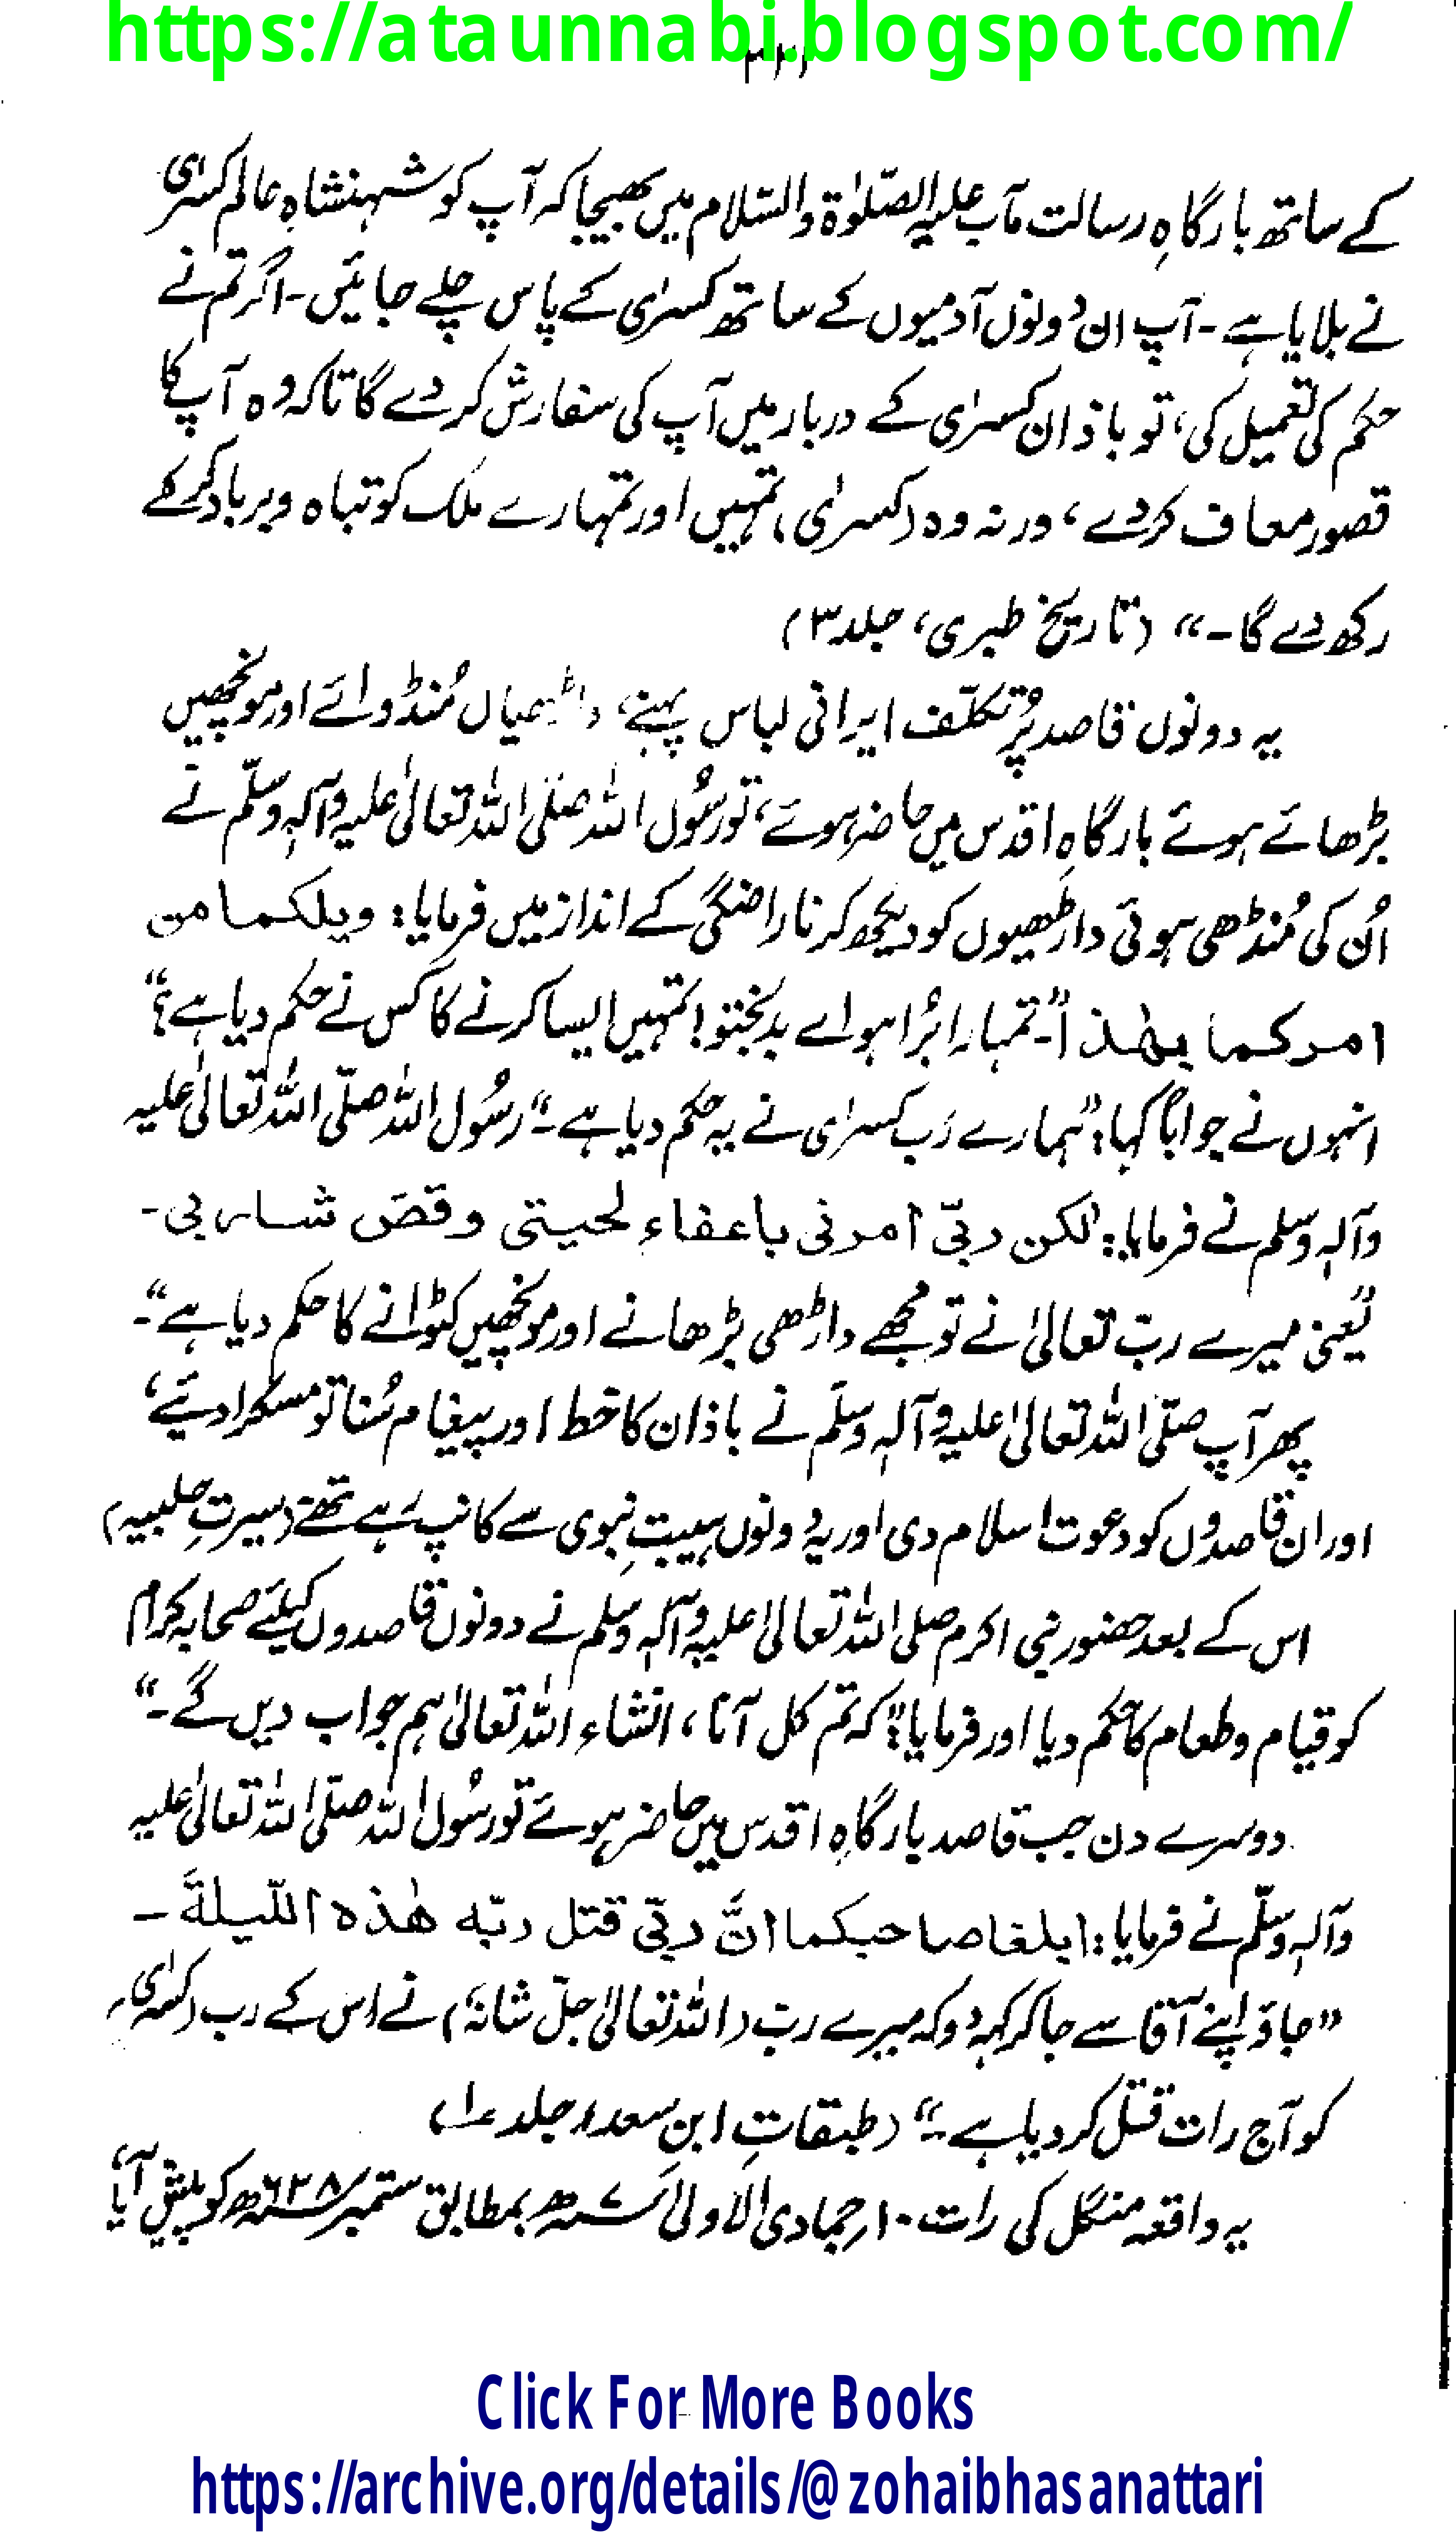 https://ataunnabi.blogspot.com/
کے ساتھ بارگاہِ رسالت مآب علیہ الصّلوٰۃ والسّلام میں بھیجا کہ آپ کو شہنشاہِ عالم کسریٰ
نے بلایا ہے۔ آپ ان دونوں آدمیوں کے ساتھ کسریٰ کے پاس چلے جائیں۔ اگر تم نے
حکم کی تعمیل کی، تو باذان کسریٰ کے دربار میں آپ کی سفارش کر دے گا تاکہ وہ آپ کا
قصور معاف کر دے، ورنہ وہ (کسریٰ) تمہیں اور تمہارے ملک کو تباہ و برباد کر کے
رکھ دے گا۔“ (تاریخ طبری، جلد ۳)
یہ دونوں قاصد پُرتکلّف ایرانی لباس پہنے، داڑھیاں مُنڈوائے اور مونچھیں
بڑھائے ہوئے بارگاہِ اقدس میں حاضر ہوئے، تو رسُول اللہ صلّی اللہ تعالیٰ علیہ وآلہٖ وسلّم نے
اُن کی مُنڈھی ہوئی داڑھیوں کو دیکھ کر ناراضگی کے انداز میں فرمایا: ویلکما من
امرکما بھٰذا”۔ تمہارا بُرا ہو اے بدبختو! تمہیں ایسا کرنے کا کس نے حکم دیا ہے؟“
انہوں نے جواباً کہا: ”ہمارے رَب کسریٰ نے یہ حکم دیا ہے۔“ رسُول اللہ صلّی اللہ تعالیٰ علیہ
وآلہٖ وسلم نے فرمایا: ”لکن ربّی امرنی باعفاء لحیتی وقصّ شاربی۔
”یعنی میرے ربّ تعالیٰ نے تو مجھے داڑھی بڑھانے اور مونچھیں کٹوانے کا حکم دیا ہے“۔
پھر آپ صلّی اللہ تعالیٰ علیہ وآلہٖ وسلّم نے باذان کا خط اور پیغام سُنا تو مسکرا دئیے،
اور ان قاصدوں کو دعوت اسلام دی اور یہ دونوں ہیبتِ نبوی سے کانپ رہے تھے (سیرتِ حلبیہ)
اس کے بعد حضور نبی اکرم صلی اللہ تعالیٰ علیہ وآلہٖ وسلم نے دونوں قاصدوں کیلئے صحابہ کرام
کو قیام و طعام کا حکم دیا اور فرمایا: ”کہ تم کل آنا، انشاء اللہ تعالیٰ ہم جواب دیں گے۔“
دوسرے دن جب قاصد بارگاہِ اقدس میں حاضر ہوئے تو رسُول اللہ صلّی اللہ تعالیٰ علیہ
وآلہٖ وسلّم نے فرمایا: ابلغا صاحبکما انّ ربّی قتل ربّه ھٰذہ اللّیلة۔
”جاؤ اپنے آقا سے جا کر کہہ دو کہ میرے ربّ (اللہ تعالیٰ جلّ شانہٗ) نے اس کے رب (کسریٰ)
کو آج رات قتل کر دیا ہے۔“ (طبقاتِ ابنِ سعد، جلد ۱)
یہ واقعہ منگل کی رات ۱۰ جمادی الاولیٰ ۷ھ بمطابق ستمبر ۶۲۸ھ کو پیش آیا،
Click For More Books
https://archive.org/details/@zohaibhasanattari